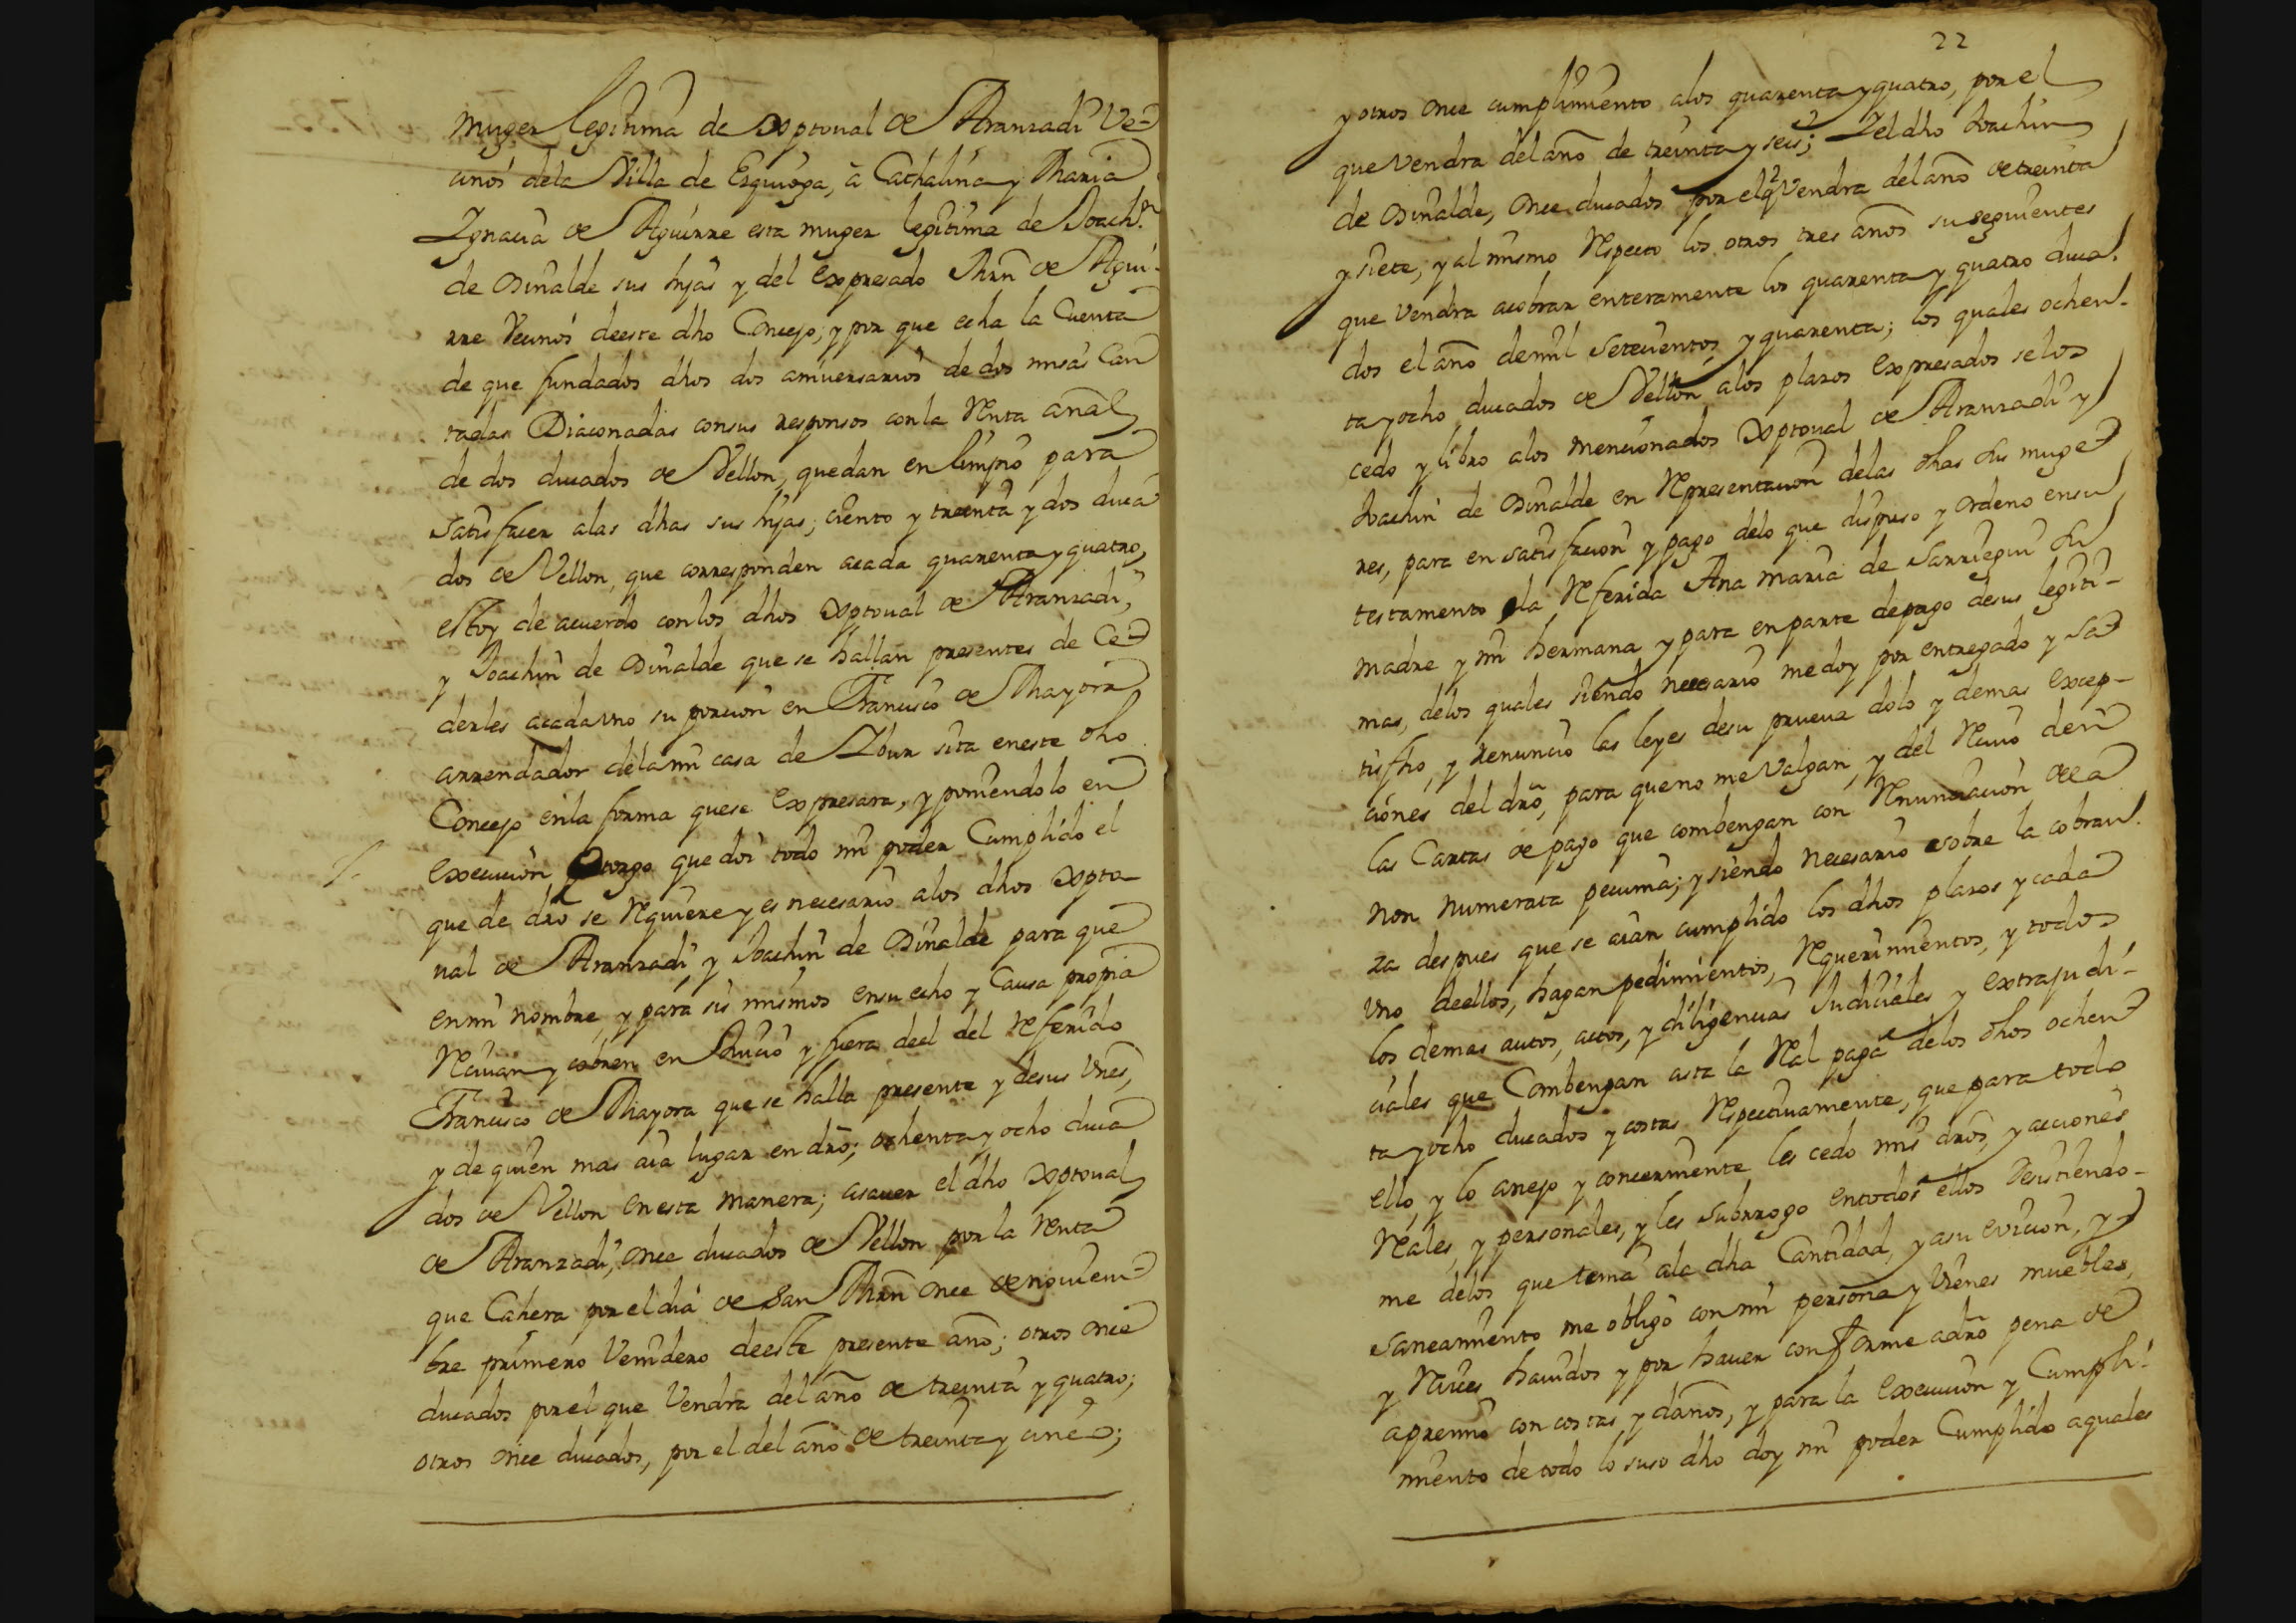 muger legitima de Xptoual de Aranzadi Ve-
cinos dela Villa de Ezquioga, â Cathalina y Maria
Ygnacia de Aguirre esta muger legitima de Joachn
de Oinalde sus hijas y del expresado Mrñ de Agui-
rre Vecinos deeste dho Concejo; y por que echa la Cuenta
de que fundados dhos dos aniuersarios de dos misas Can
tadas Diaconadas consus responsos conla Renta añal
de dos ducados de Vellon, quedan en limpio para
satisfacer alas dhas sus hijas; ciento y treinta y dos duca
dos de Vellon, que corresponden acada quarenta y quatro,
estoy de acuerdo conlos dhos Xptoual de Aranzadi,
y Joachin de Oinalde que se hallan presentes de Ce-
derles acada vno su porcion en Francisco de Mayora
arrendador dela mi casa de Ybur sita eneste dho
Concejo enla forma quese expresara, y poniendolo en
execucion otorgo que doi todo mi poder Cumplido el
que de dro se Requiere y es necesario alos dhos Xpto
ual de Aranzadi y Joachin de Oinalde para que
enmi nombre y para sis mismos ensu echo y Causa propia
Reciuan y cobren en Juicio y fuera deel del Referido
Francisco de Mayora que se halla presente y desus Vnes,
y de quien mas aia lugar en dro; ochenta y ocho duca
dos de Vellon enesta manera; asauer el dho Xptoual
de Aranzadi, once ducados de Vellon por la Renta
que Cahera por el dia de San Mrñ once de nouiem-
bre primero Venidero deeste presente año; otros once
ducados por el que Vendra del año de treinta y quatro;
otros once ducados, por el del año de treinta y cinco;
22
y otros once cumplimiento alos quarenta y quatro, por el
que vendra del año de treinta y seis; Y el dho Joachin
de Oinalde, once ducados por el q Vendra del año de treinta
y siete; y al mismo Respecto los otros tres años susequientes
que vendra acobrar enteramente los quarenta y quatro duca-
dos el año demil setecientos y quarenta; los quales ochen-
ta y ocho ducados de Vellon alos plazos expresados se los
cedo y libro alos mencionados Xptoual de Aranzadi y
Joachin de Oinalde en Representacion delas dhas sus muge-
res, para en satisfacion y pago delo que dispuso y ordeno ensu
testamento la Referida Ana maria de Sarriegui su
madre y mi hermana y para en parte depago desus legiti-
mas, delos quales siendo necesario medoy por entregado y sa-
tisfho, y renuncio las leyes desu prueua dolo y demas excep-
ciones del dro, para queno me Valgan, y del Reciuo den
las Cartas de pago que combengan con Renunciacion dela
non numerata pecunia; y siendo necesario sobre la cobran-
za despues que se aian cumplido los dhos plazos y cada
vno deellos, hagan pedimientos, Requerimientos, y todos
los demas autos, actos, y diligencias Judiciales y extrajudi-
ciales que Combengan asta la Real paga delos dhos ochen-
ta y ocho ducados y costas Respectiuamente, que para todo
ello, y lo anejo y concerniente les cedo mis dros, y acciones
Reales, y personales, y les subrrogo entodos ellos desistiendo-
me delos que tenia ala dha Cantidad, y asu euicion, y
saneamiento me obligo con mi persona y Vienes muebles,
y Raices hauidos y por hauer conforme adro pena de
apremio con costas y daños, y para la execucion y Cumpli-
miento de todo lo suso dho doy mi poder Cumplido aquales